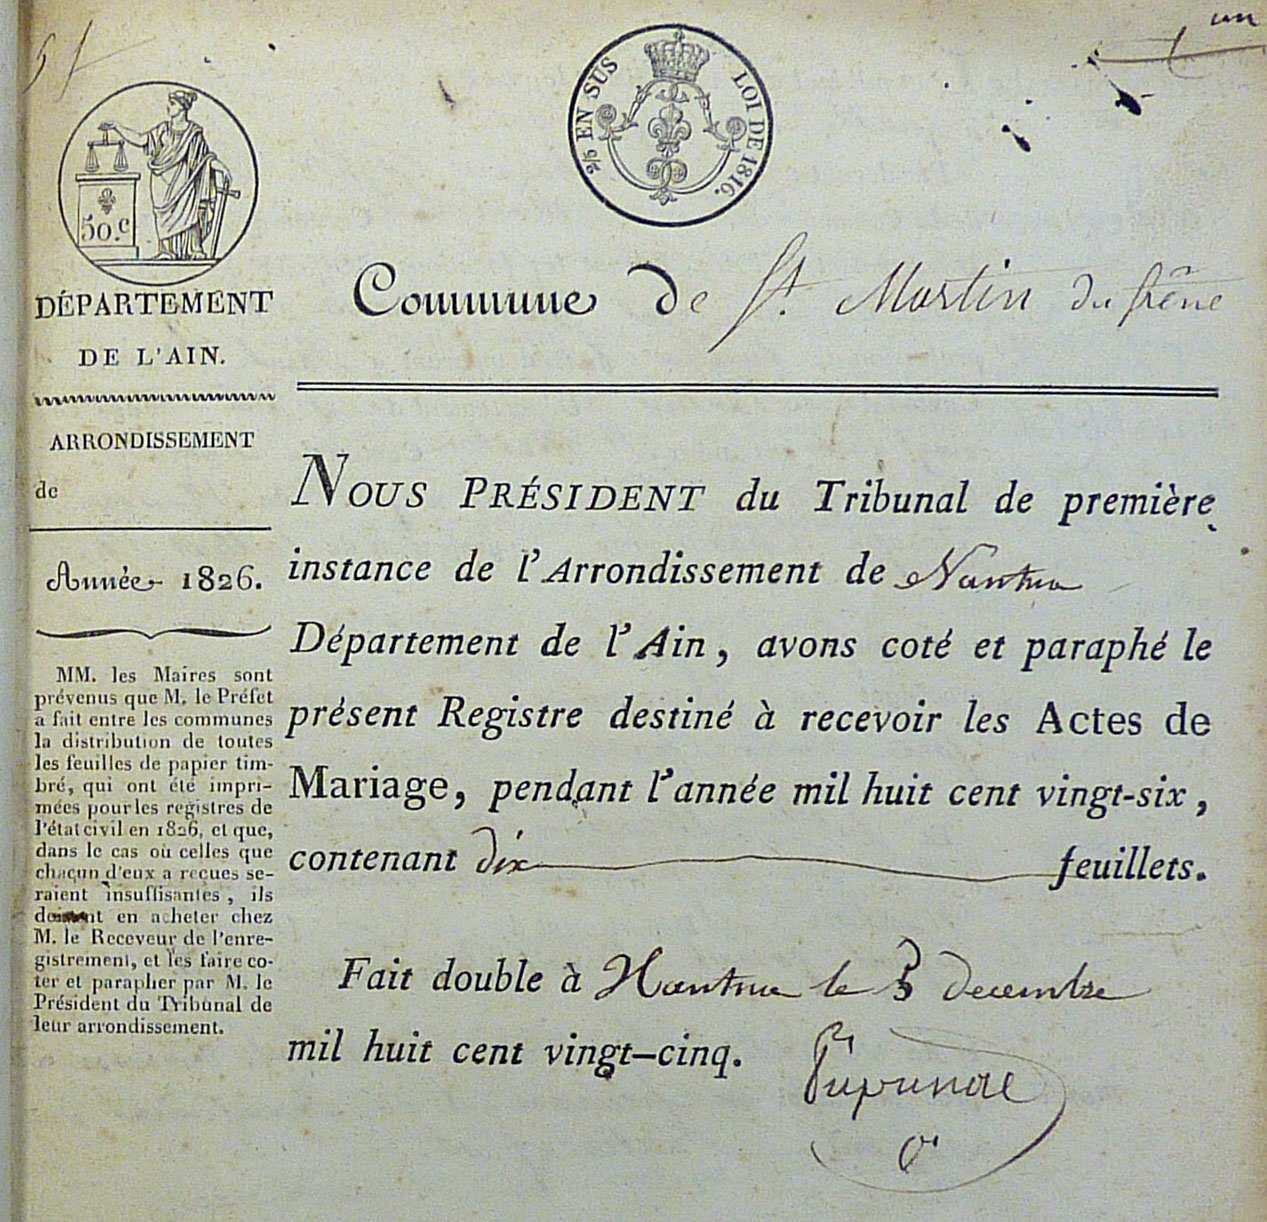 un
2/5 EN SUS
LOI DE 1816.
50.c
DÉPARTEMENT
DE L'AIN.
ARRONDISSEMENT
de
Année 1826.
MM. les Maires sont
prévenus que M. le Préfet
a fait entre les communes
la distribution de toutes
les feuilles de papier tim-
bré, qui ont été impri-
mées pour les registres de
l'état civil en 1826, et que,
dans le cas où celles que
chacun d'eux a reçues se-
raient insuffisantes, ils
doivent en acheter chez
M. le Receveur de l'enre-
gistrement, et les faire co-
ter et parapher par M. le
Président du Tribunal de
leur arrondissement.
Commune de St. Martin du frêne
NOUS PRÉSIDENT du Tribunal de première
instance de l'Arrondissement de Nantua
Département de l'Ain, avons coté et paraphé le
présent Registre destiné à recevoir les Actes de
Mariage, pendant l'année mil huit cent vingt-six,
contenant dix feuillets.
Fait double à Nantua le 5 decembre
mil huit cent vingt-cinq.